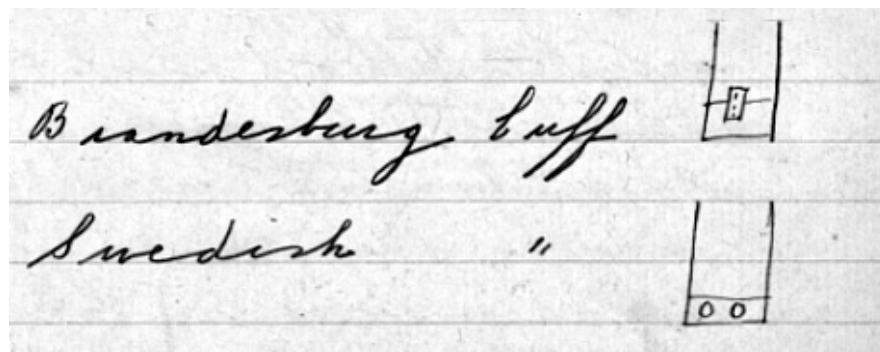 Brandesburg Cuff
Swedish "